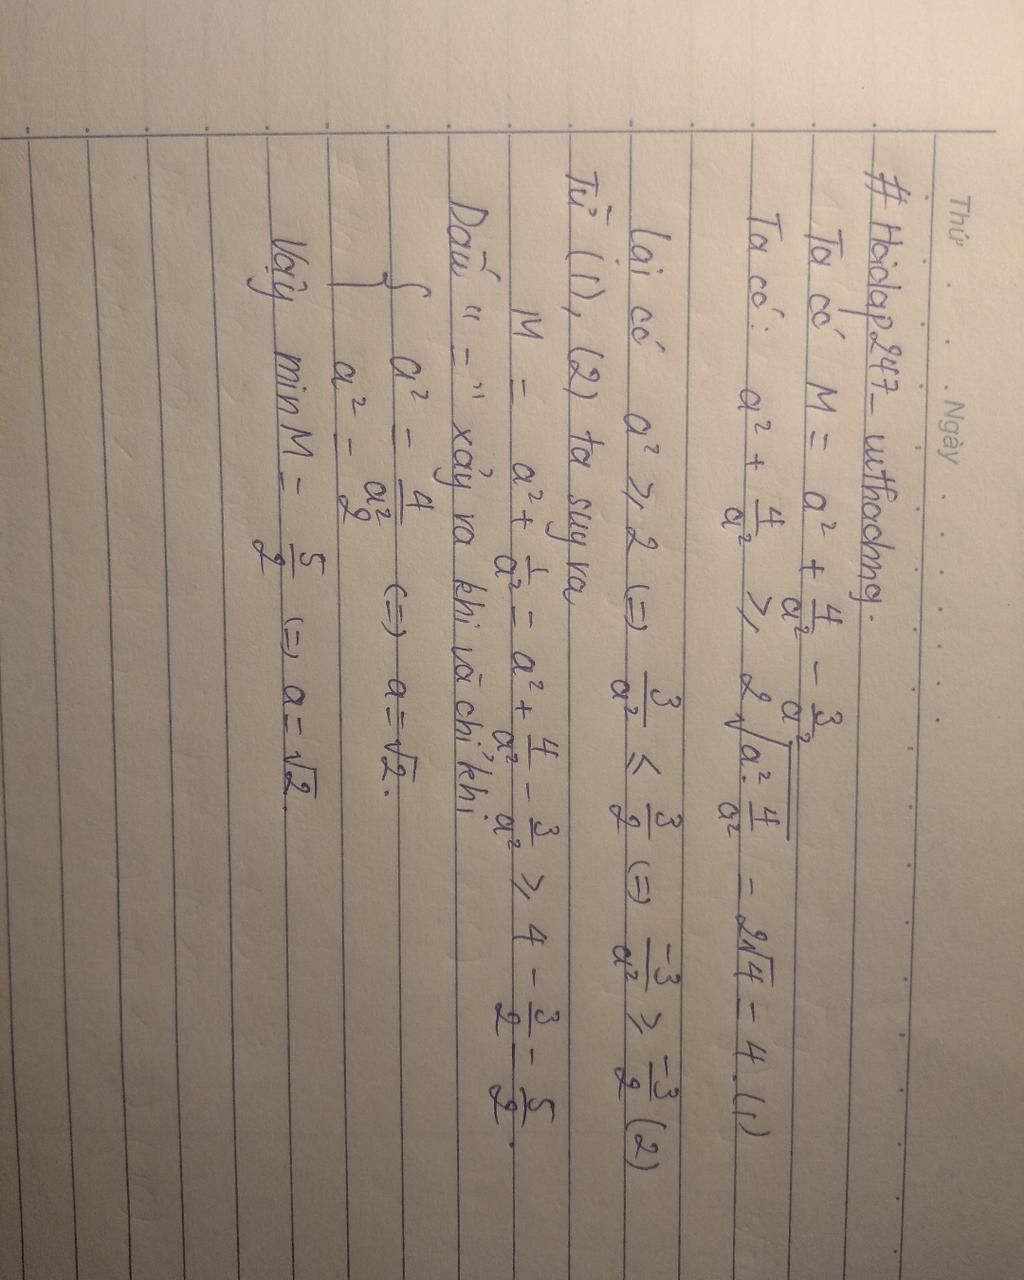 Thứ . . . Ngày . . . . . . .
# Hoidap247_ nthadmg.
Ta có M = a² + 4/a² - 3/a²
Ta có: a² + 4/a² ⩾ 2√(a². 4/a²) = 2√4 = 4. (1)
Lại có a² ⩾ 2 (=) 3/a² ⩽ 3/2 (=) -3/a² ⩾ -3/2 (2)
Từ (1), (2) ta suy ra
M = a² + 1/a² = a² + 4/a² - 3/a² ⩾ 4 - 3/2 = 5/2.
Dấu "=" xảy ra khi và chỉ khi
{ a² = 4/a² (=) a = √2.
a² = 2
Vậy min M = 5/2 (=) a = √2.